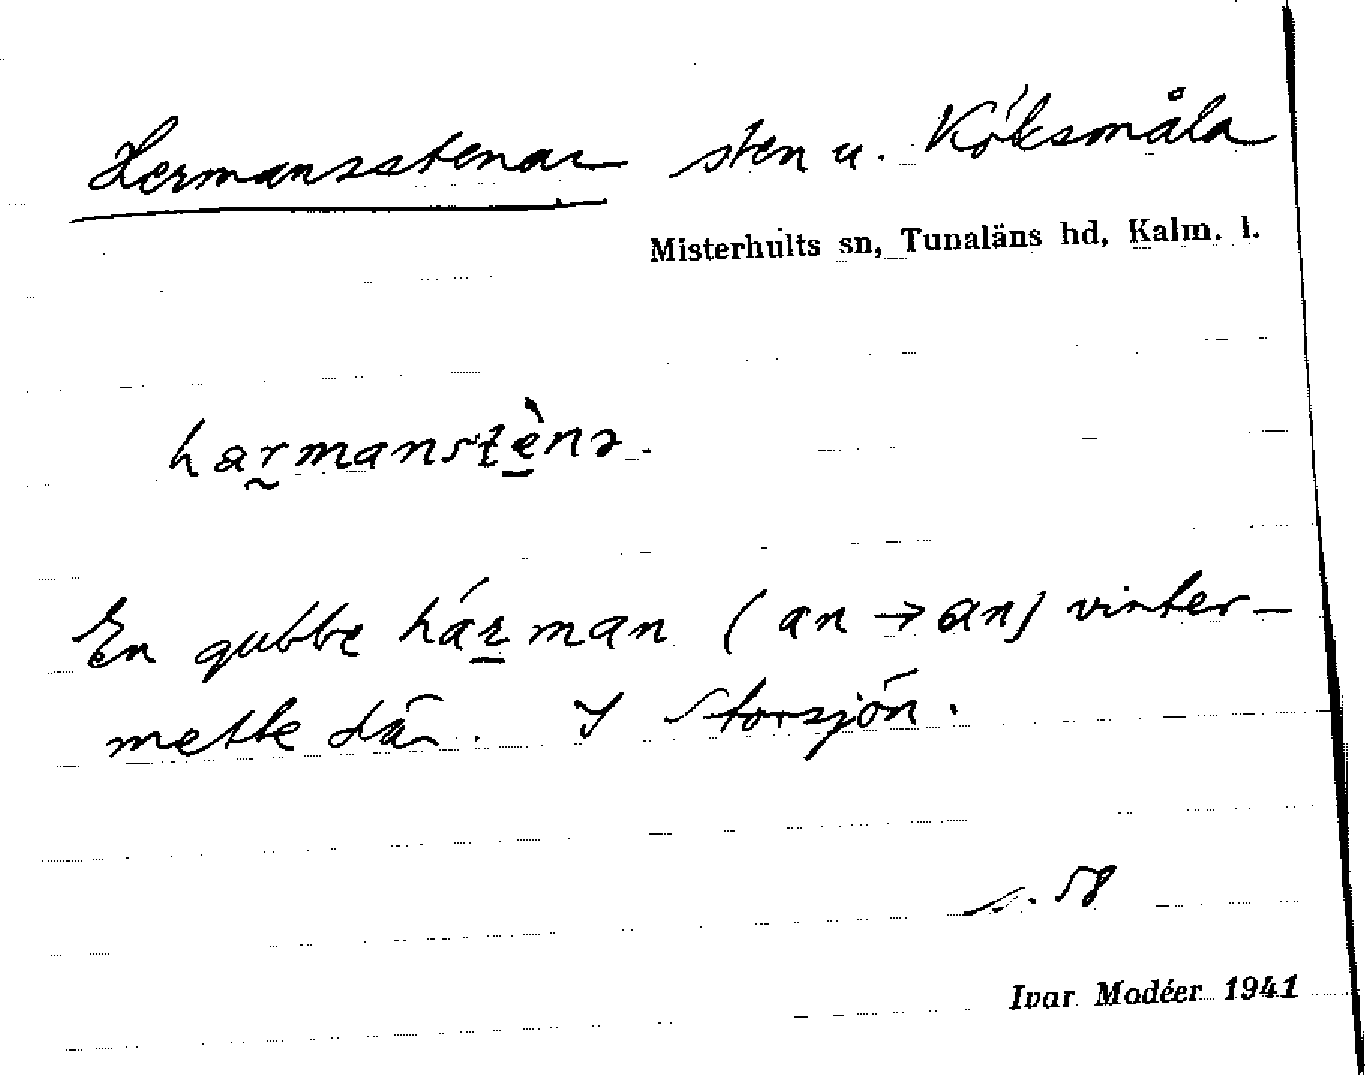 Hermansstenar sten u. Kóksmåla
Misterhults sn, Tunaläns hd, Kalm. l.
harmanstènə.
En gubbe hárman (an → an) vinter-
mette där. I Storsjön.
s. 58
Ivar Modéer 1941